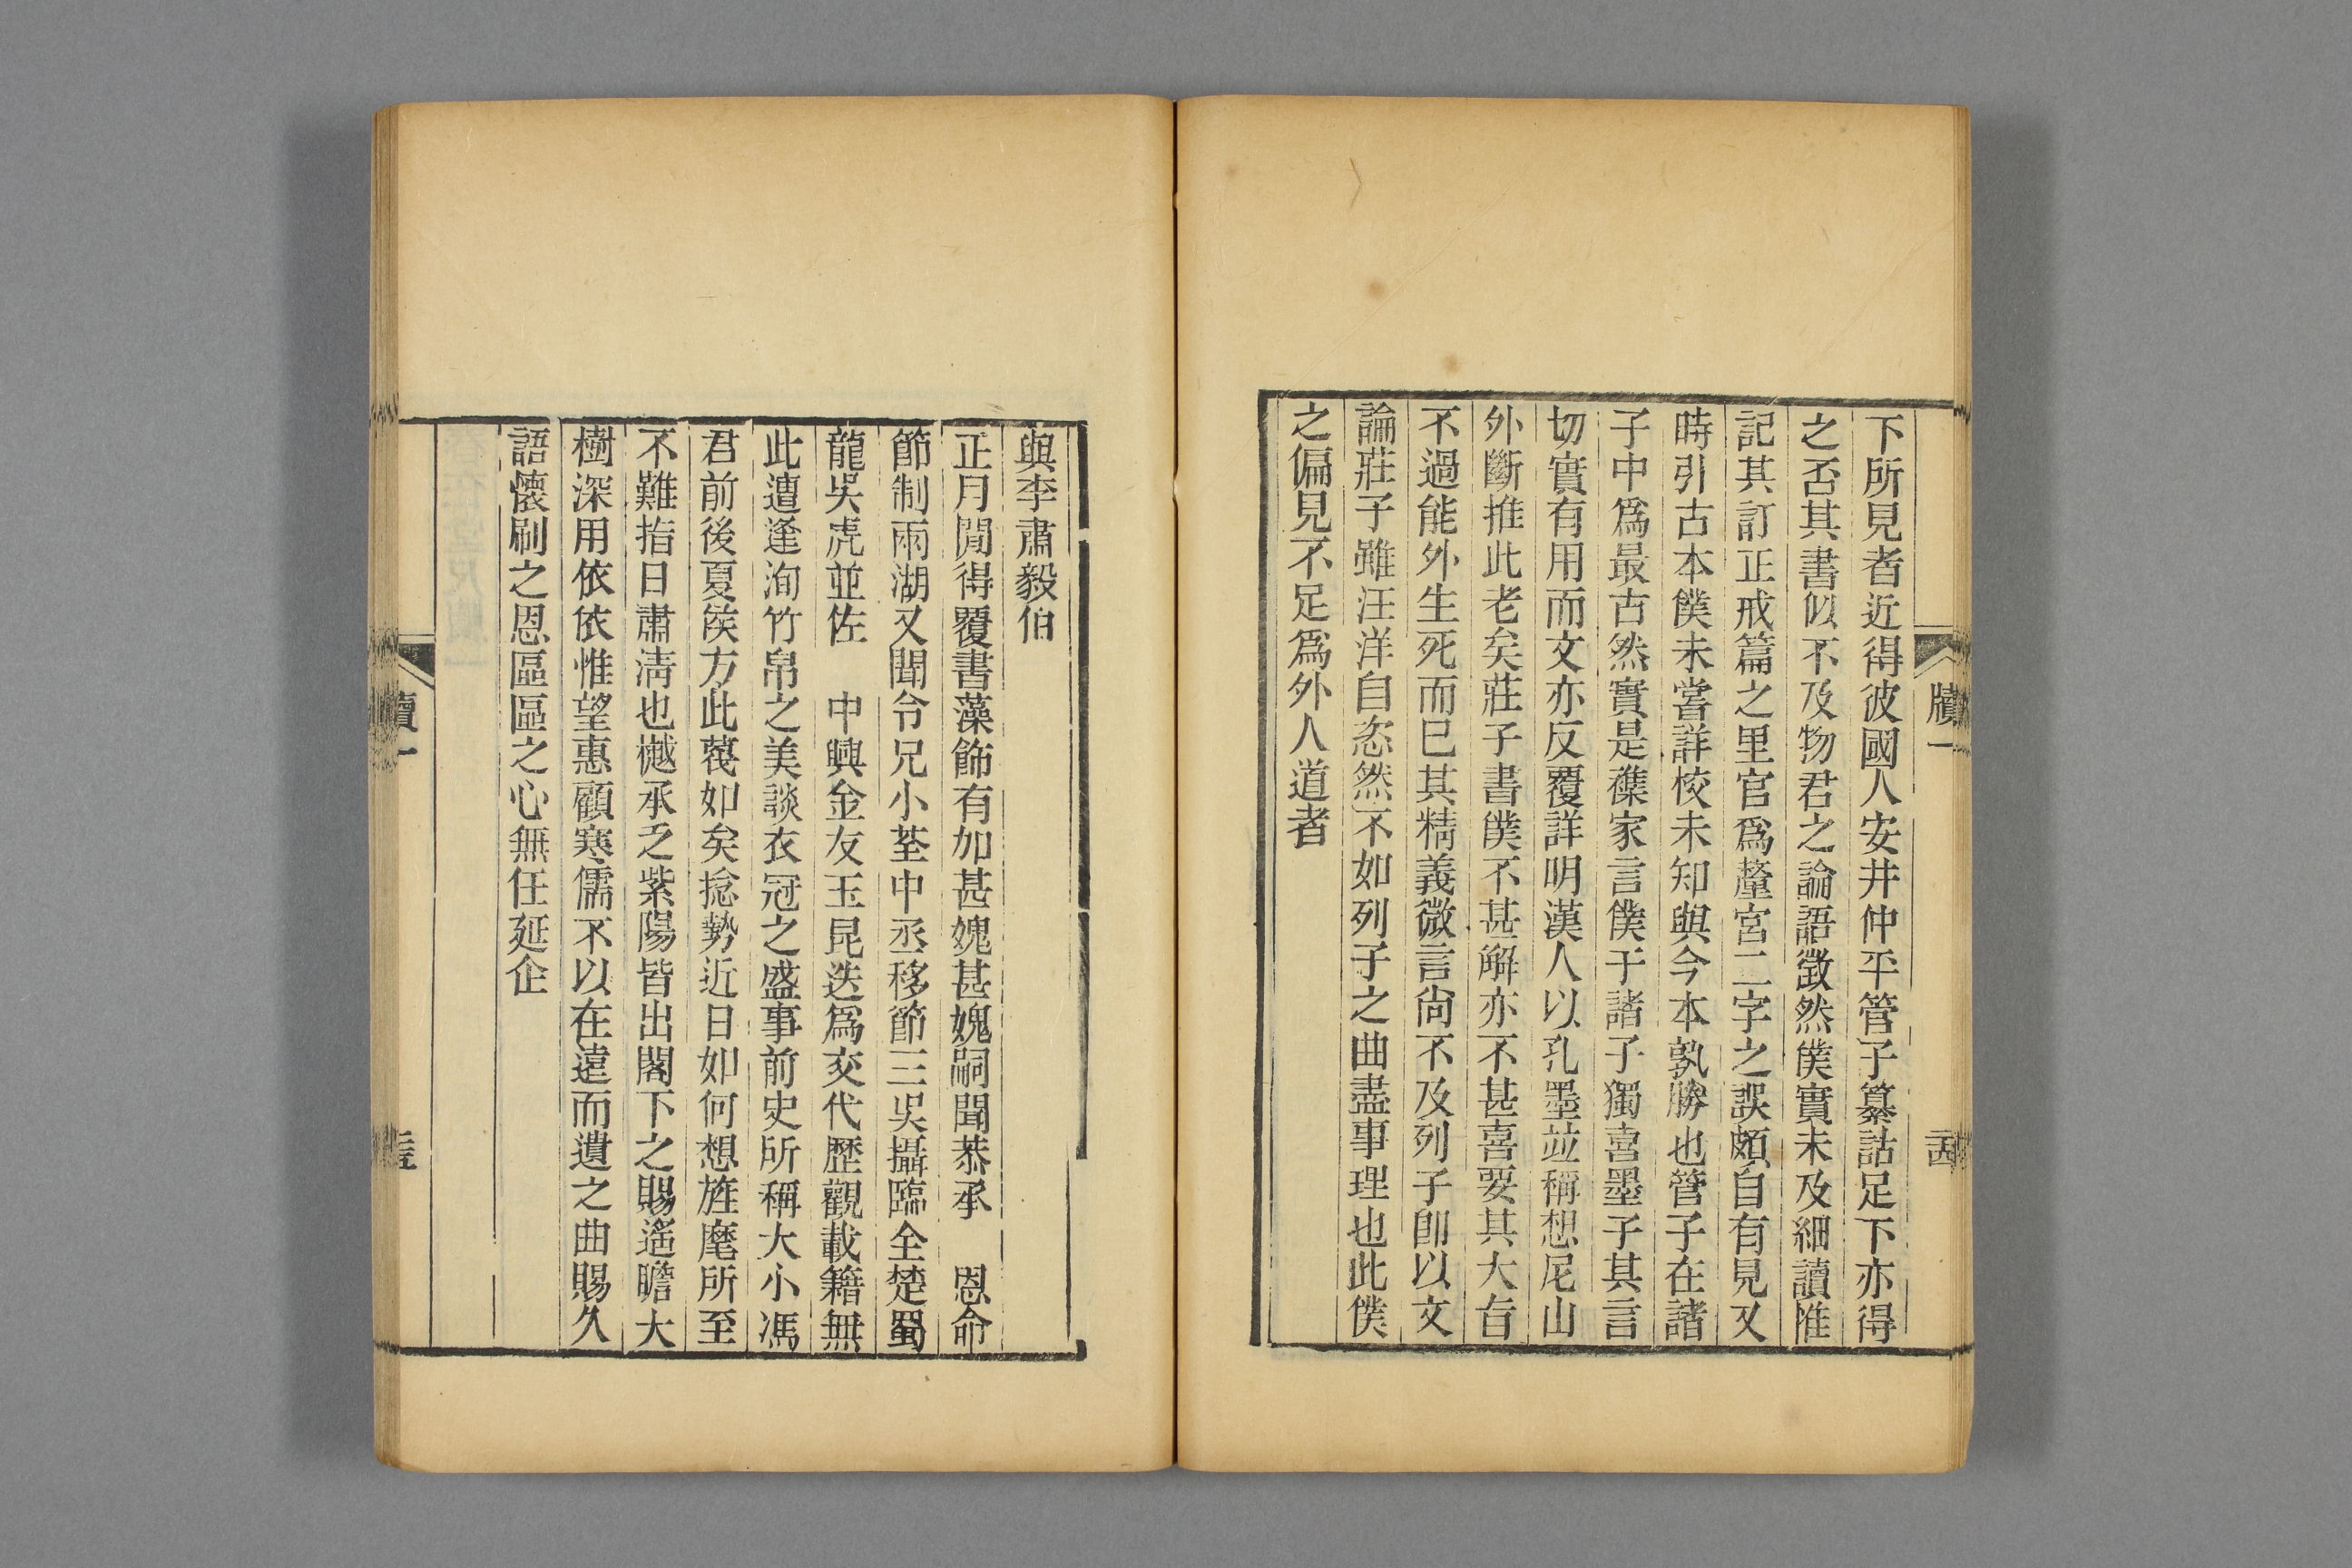 下所見者近得彼國人安井仲平管子纂詁足下亦得
之否其書似不及物君之論語徵然僕實未及細讀惟
記其訂正戒篇之里官爲釐宮二字之誤頗自有見又
時引古本僕未嘗詳校未知與今本孰勝也管子在諸
子中爲最古然實是襍家言僕于諸子獨喜墨子其言
切實有用而文亦反覆詳明漢人以孔墨並稱想尼山
外斷推此老矣莊子書僕不甚解亦不甚喜要其大旨
不過能外生死而已其精義微言尙不及列子卽以文
論莊子雖汪洋自恣然不如列子之曲盡事理也此僕
之偏見不足爲外人道者
牘一
與李肅毅伯
正月閒得覆書藻飾有加甚媿甚媿嗣聞恭承　恩命
節制兩湖又聞令兄小荃中丞移節三吳攝臨全楚蜀
龍吳虎並佐　中興金友玉昆迭爲交代歷觀載籍無
此遭逢洵竹帛之美談衣冠之盛事前史所稱大小馮
君前後夏矦方此蔑如矣捻勢近日如何想旌麾所至
不難指日肅淸也樾承乏紫陽皆出閣下之賜遙瞻大
樹深用依依惟望惠顧寒儒不以在遠而遺之曲賜久
語懷刷之恩區區之心無任延企
牘一